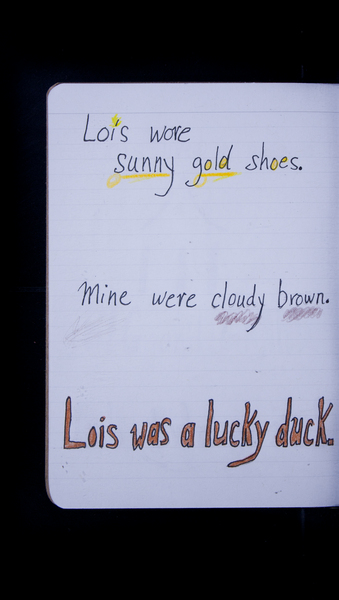 Lois wore
sunny gold shoes.
Mine were cloudy brown.
Lois was a lucky duck.